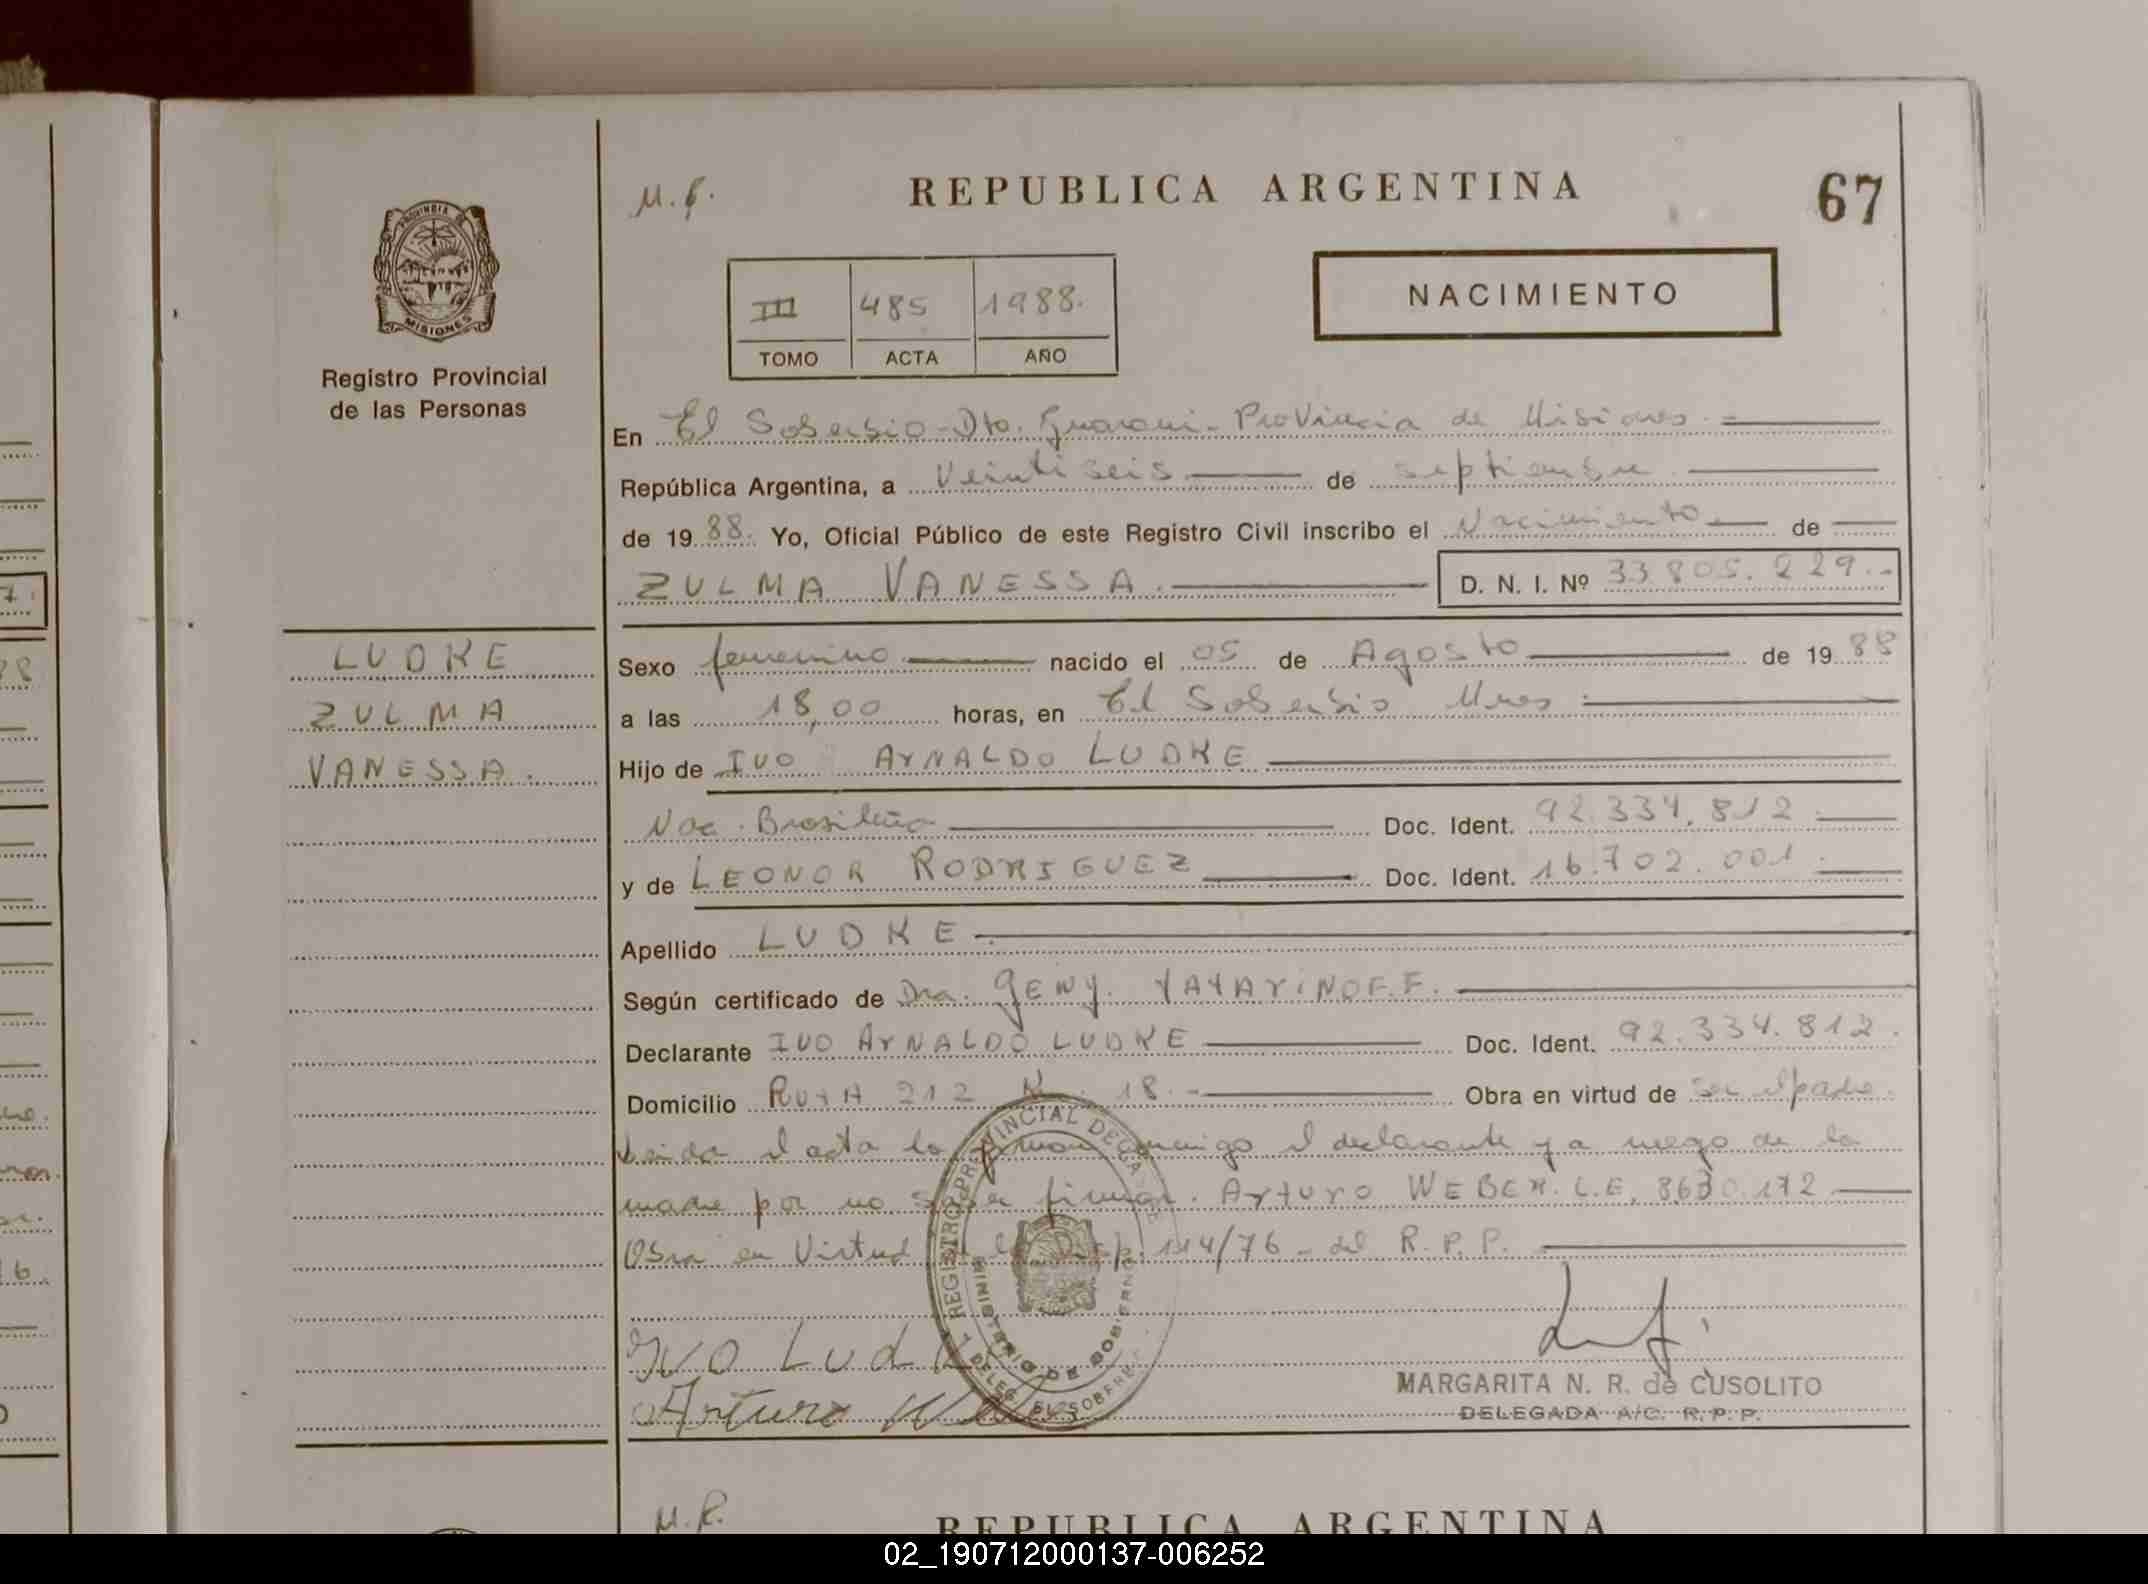 M.F.
REPUBLICA ARGENTINA
67
PROVINCIA DE
MISIONES
Registro Provincial
de las Personas
III 485 1988.
TOMO ACTA AÑO
NACIMIENTO
En El Soberbio - Dto. Guarani - Provincia de Misiones. =
República Argentina, a Veintiseis de septiembre.
de 19 88. Yo, Oficial Público de este Registro Civil inscribo el Nacimiento de
ZULMA VANESSA. D. N. I. Nº 33.805.229.-
LUDKE
ZULMA
VANESSA.
Sexo femenino nacido el 05 de Agosto de 19 88
a las 18,00 horas, en El Soberbio Mnes
Hijo de IVO ARNALDO LUDKE
Nac. Brasileña Doc. Ident. 92.334.812
y de LEONOR RODRIGUEZ Doc. Ident. 16.702.001.
Apellido LUDKE
Según certificado de Dra. GENY. TATARINOFF.
Declarante IVO ARNALDO LUDKE Doc. Ident. 92.334.812.
Domicilio RUTA 212 K. 18.- Obra en virtud de ser el padre.
Leida el acta la firman conmigo el declarante y a ruego de la
madre por no saber firmar. Arturo WEBER. L.E. 8630.172
Obra en Virtud de la Disp. 114/76 - del R.P.P.
REGISTRO PROVINCIAL DE LA
MINISTERIO DE GOBIERNO
DELEG. EL SOBERBIO
Ivo Ludke
Arturo
MARGARITA N. R. de CUSOLITO
DELEGADA A/C. R. P. P.
M.F.
REPUBLICA ARGENTINA
02_190712000137-006252